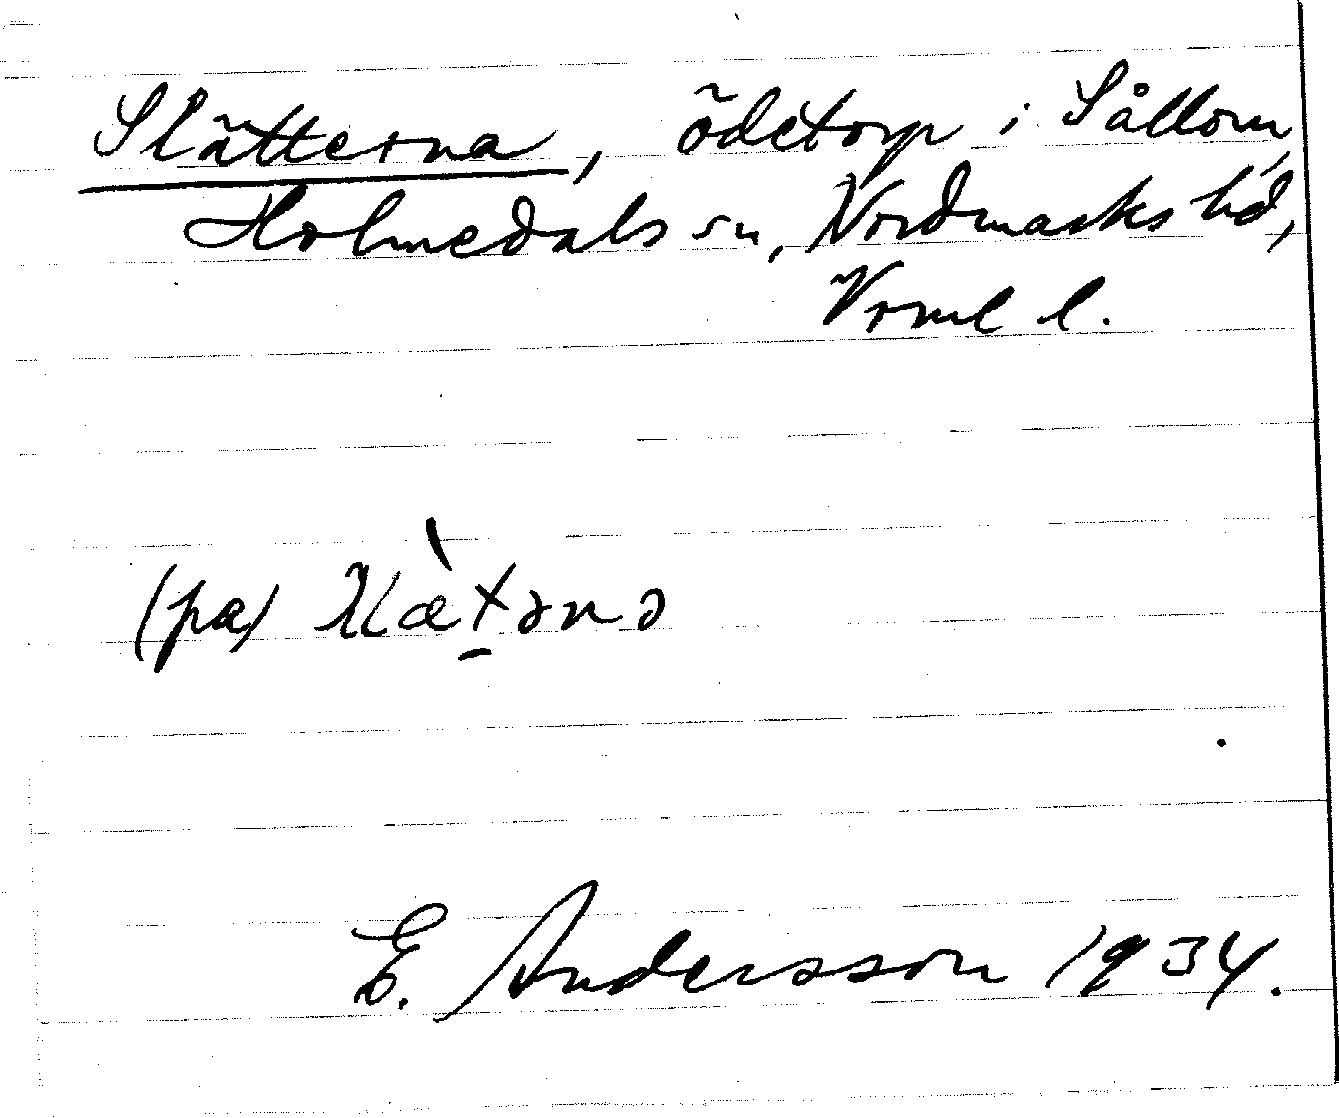 Slätterna, ödetorp i Sållom,
Holmedals sn, Nordmarks hd,
Vrml l.
(pa)
E. Andersson 1934.